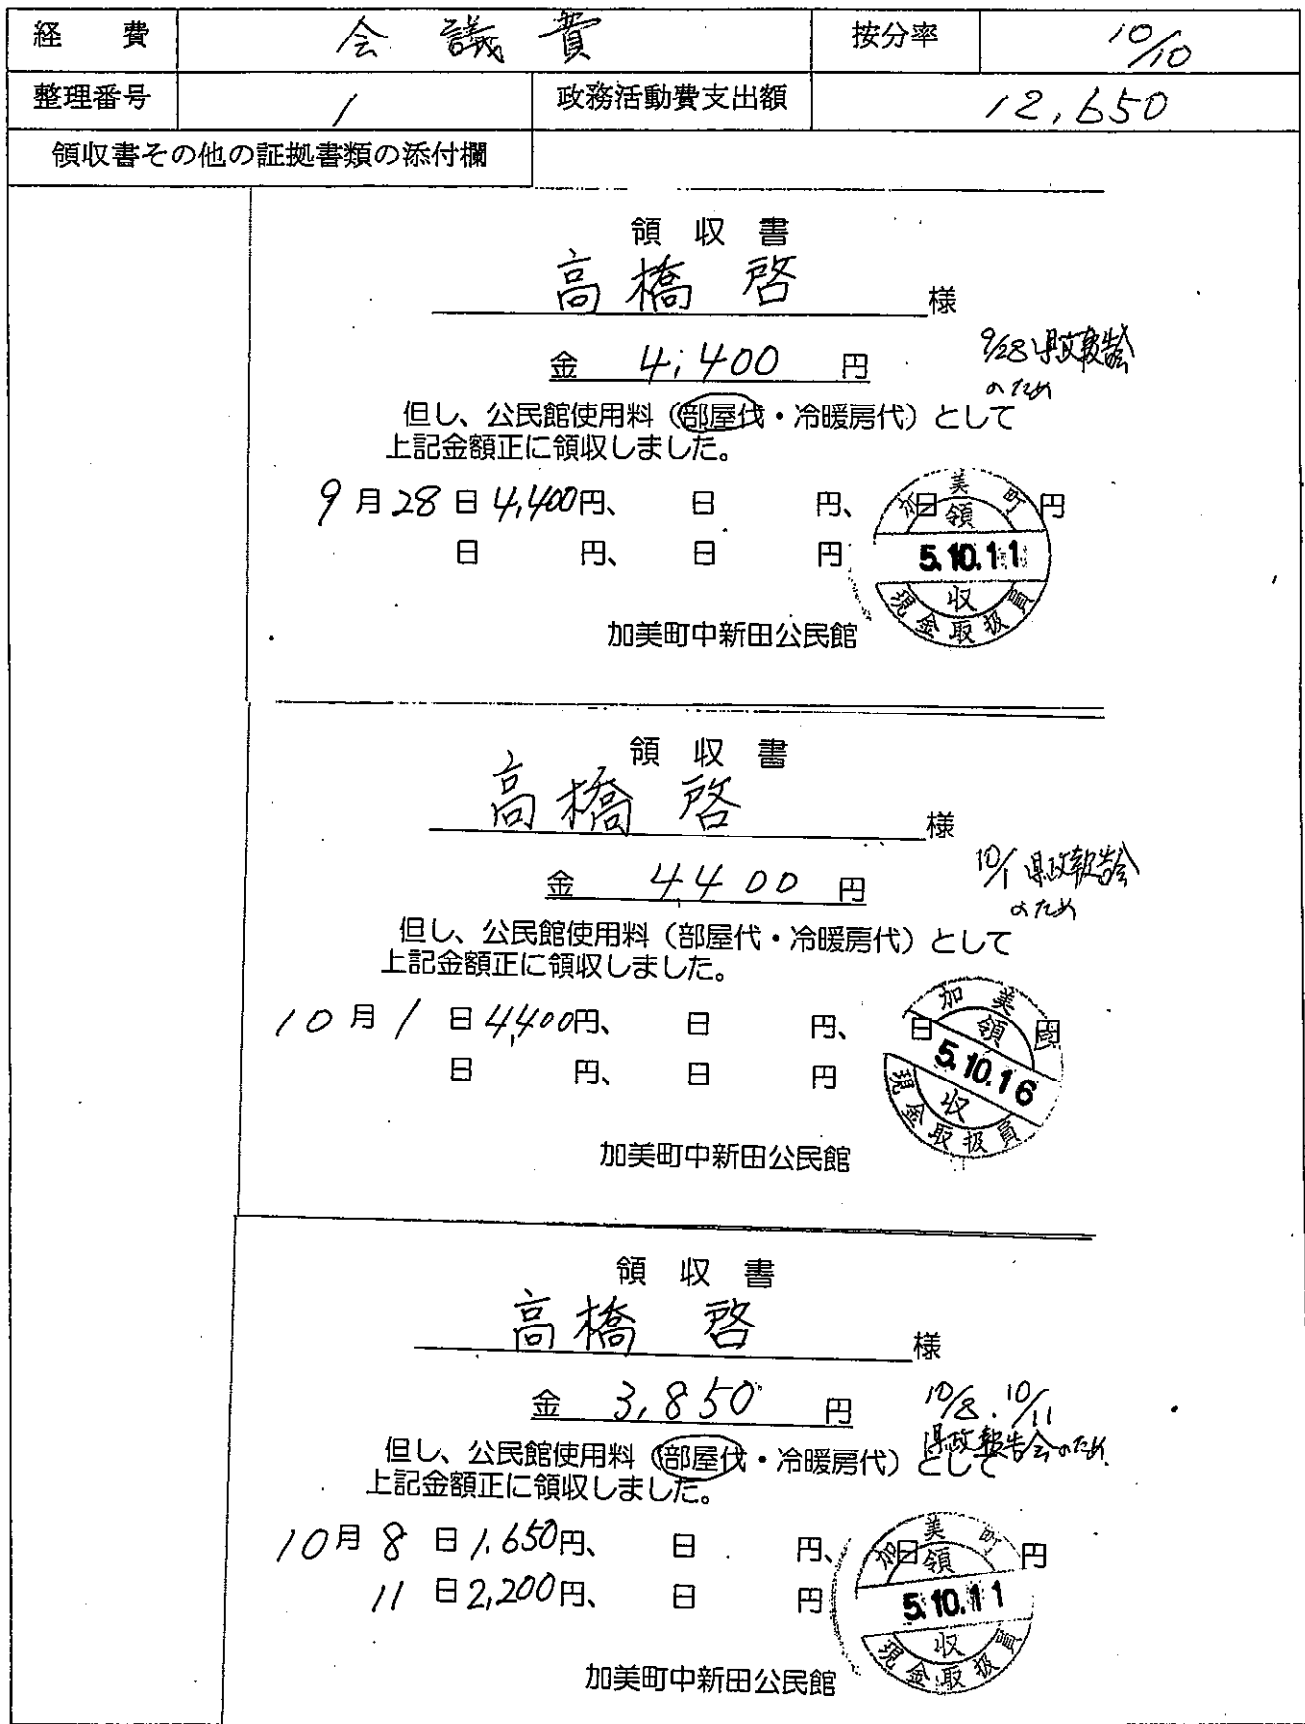 経 費 会議費 按分率 10/10
整理番号 1 政務活動費支出額 12,650
領収書その他の証拠書類の添付欄
領 収 書
高橋 啓 様
金 4,400 円
9/28 県政報告会
のため
但し、公民館使用料（部屋代・冷暖房代）として
上記金額正に領収しました。
9月28日4,400円、 日 円、 日 円
日 円、 日 円
加美町
領
5.10.11
収
現金取扱員
加美町中新田公民館
領 収 書
高橋 啓 様
金 4,400 円
10/1 県政報告会
のため
但し、公民館使用料（部屋代・冷暖房代）として
上記金額正に領収しました。
10月1日4,400円、 日 円、 日 円
日 円、 日 円
加美
領
5.10.16
収
現金取扱員
加美町中新田公民館
領 収 書
高橋 啓 様
金 3,850 円
10/8. 10/11
県政報告会のため
但し、公民館使用料（部屋代・冷暖房代）として
上記金額正に領収しました。
10月8日1,650円、 日 円、 日 円
11日2,200円、 日 円
加美町
領
5.10.11
収
現金取扱員
加美町中新田公民館